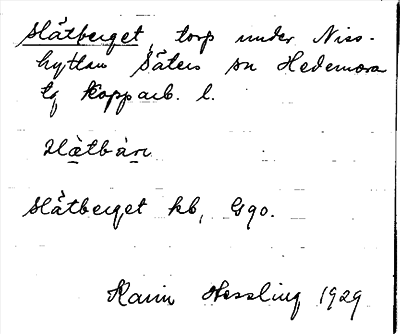 Slåtberget, torp under Niss-
hyttan Säters sn Hedemora
tg Kopparb. l.
Slåtberget kb, G90.
Karin Hessling 1929